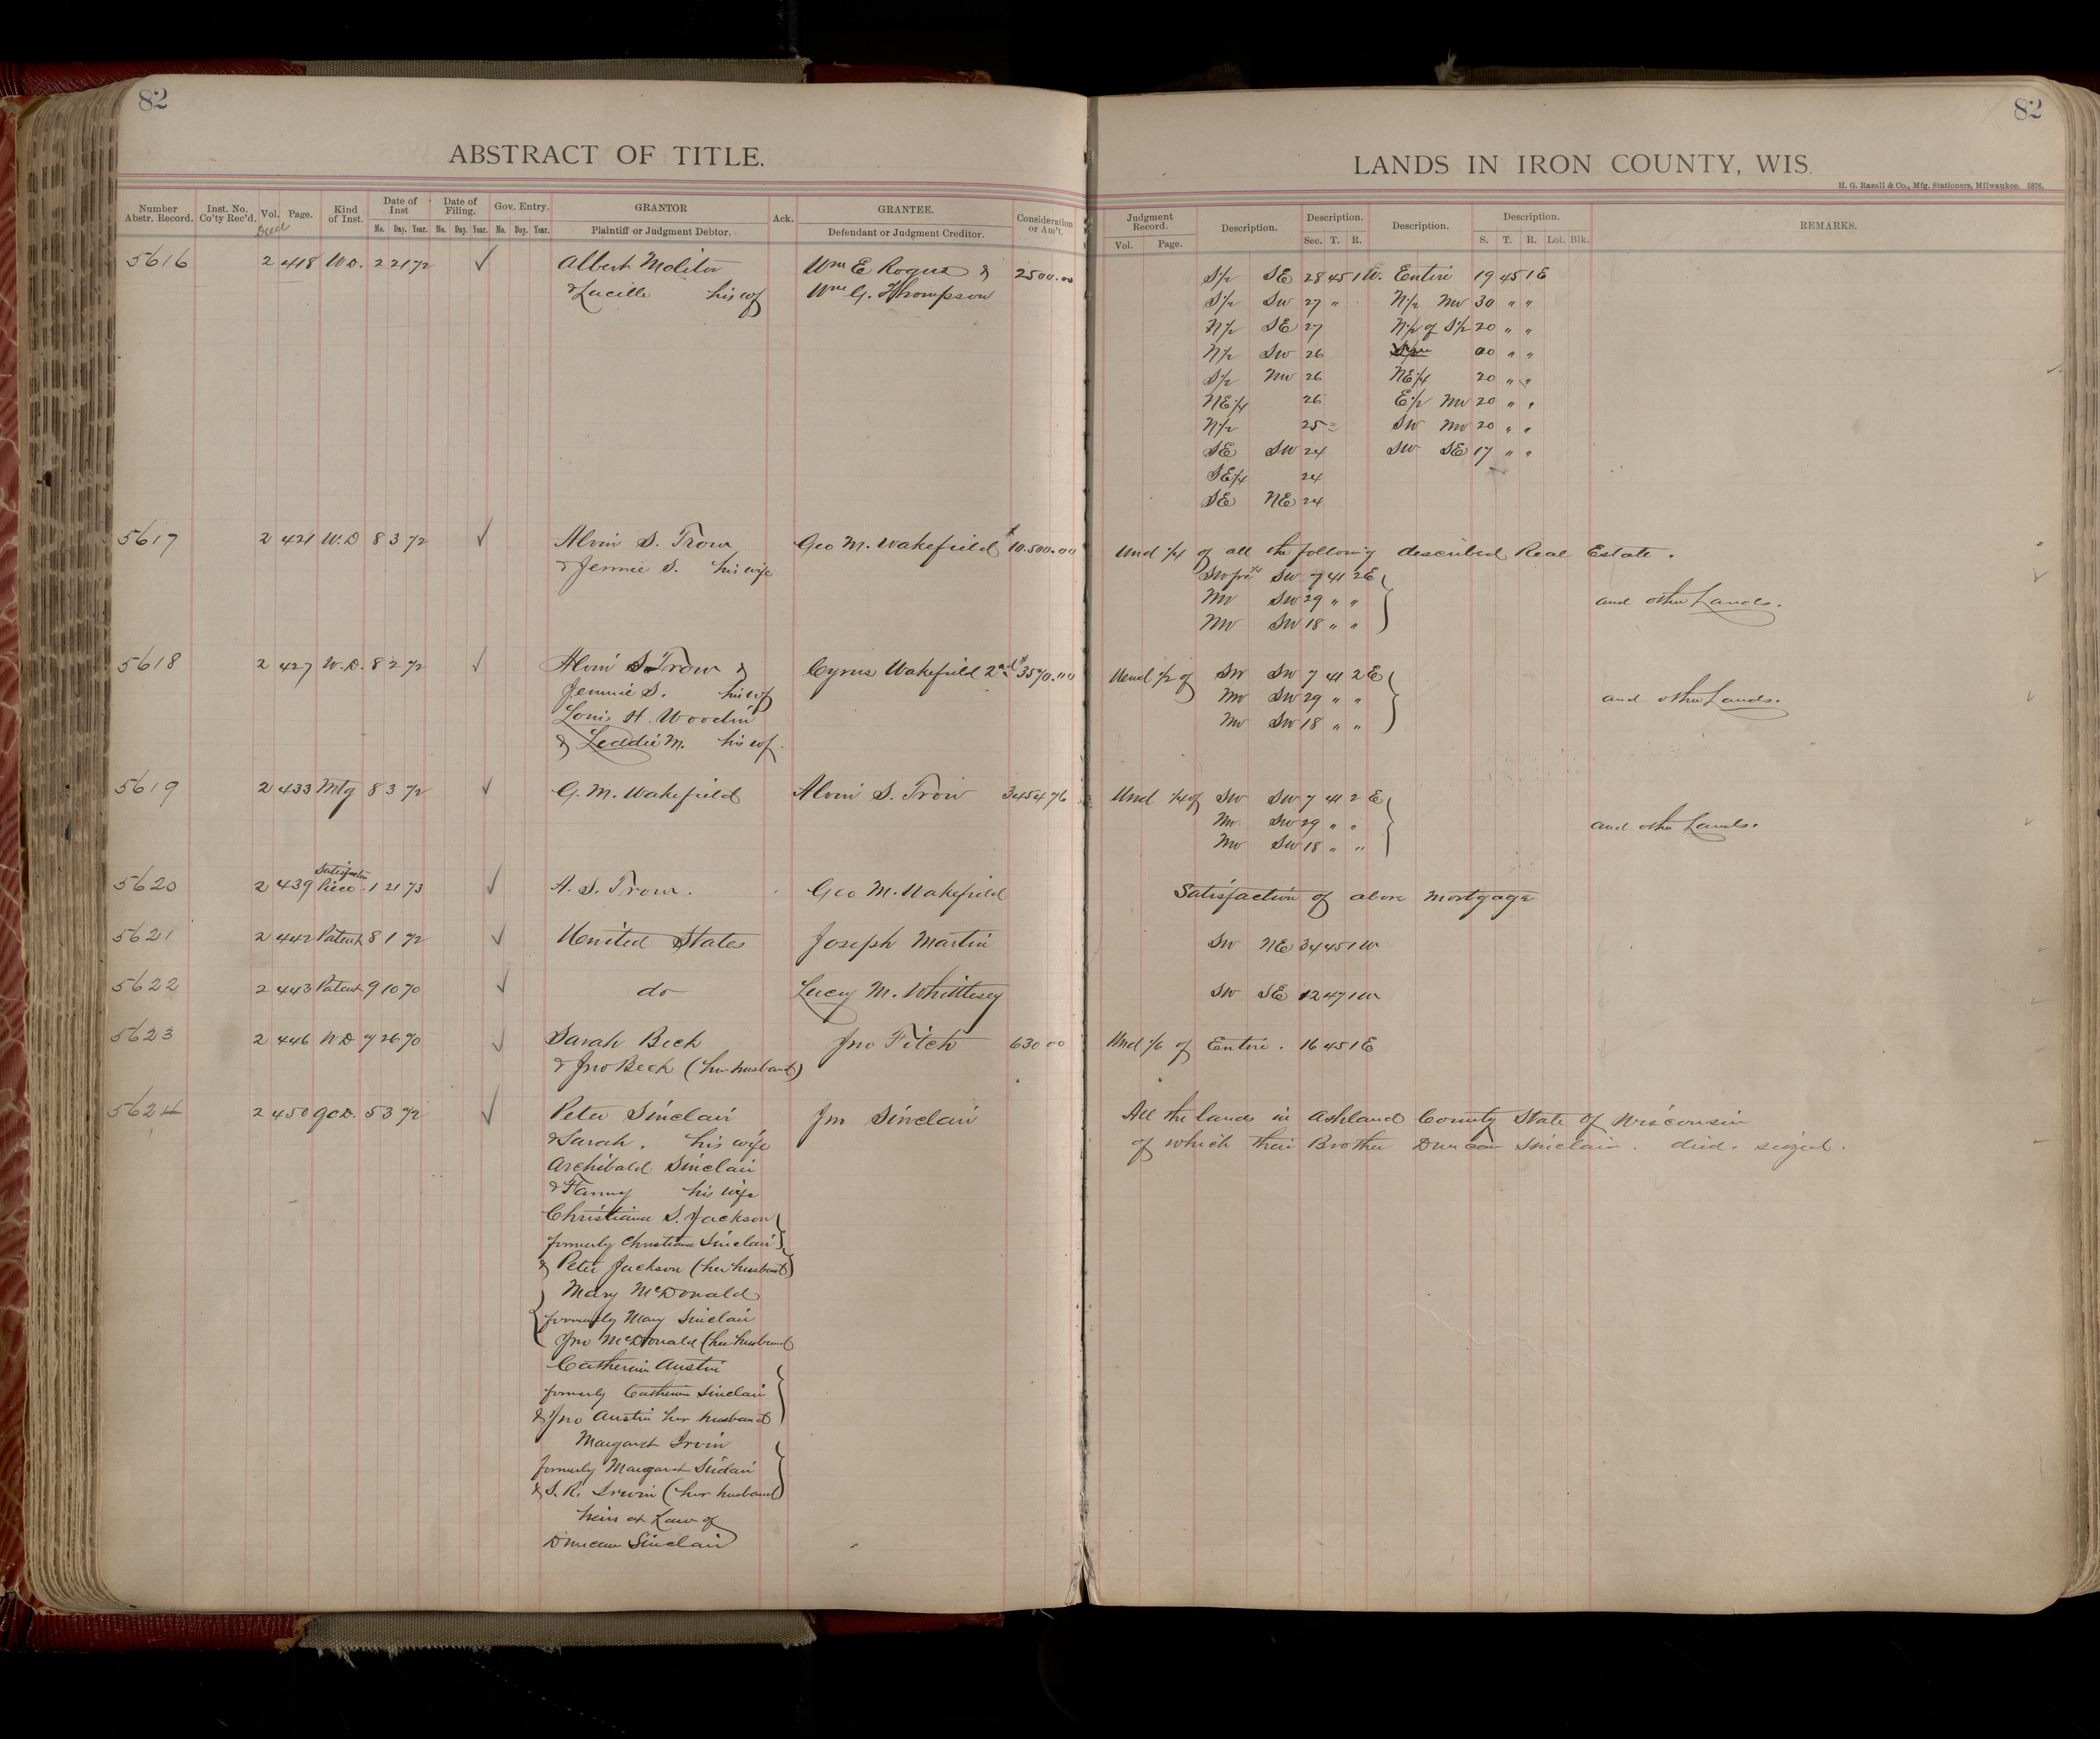 82
ABSTRACT OF TITLE.
Number Abstr. Record. Inst. No. Co'ty Rec'd. Vol. Page. Kind of Inst. Date of Inst Date of Filing. Gov. Entry. GRANTOR Ack. GRANTEE. Consideration or Am't.
Deed Mo. Day. Year. Mo. Day. Year. Mo. Day. Year. Plaintiff or Judgment Debtor. Defendant or Judgment Creditor.
5616 2 418 W.D. 2 21 72 ✓ Albert Molitor Wm E Rogers & 2500.00
& Lucille his wf Wm G. Thompson
5617 2 421 W.D 8 3 72 ✓ Alvin S. Trow Geo M. Wakefield $10.500.00
& Jennie S. his wife
5618 2 427 W.D. 8 2 72 ✓ Alvin S. Trow & Cyrus Wakefield 2nd $3570.00
Jennie S. his wf
Louis H. Woodin
& Leddie M. his wf.
5619 2 433 Mtg 8 3 72 ✓ G. M. Wakefield Alvin S. Trow 3454 76
5620 2 439 Satisfaction Piece 1 21 73 ✓ A. S. Trow. Geo M. Wakefield
5621 2 442 Patent 8 1 72 ✓ United States Joseph Martin
5622 2 443 Patent 9 10 70 ✓ do Lucy M. Whittlesey
5623 2 446 W D 7 26 70 ✓ Sarah Beck Jno Fitch 630 00
& Jno Beck (her husband)
5624 2 450 QCD. 5 3 72 ✓ Peter Sinclair Jno Sinclair
& Sarah. his wife
Archibald Sinclair
& Fanny his wife
Christiana S. Jackson
formerly Christiana Sinclair
& Peter Jackson (her husband)
Mary McDonald
formerly Mary Sinclair
Jno McDonald (her husband
Catherine Austin
formerly Catherine Sinclair
& Jno Austin her husband
Margaret Irvin
formerly Margaret Sinclair
& S. R. Irwin (her husband)
heirs at Law of
Duncan Sinclair
82
LANDS IN IRON COUNTY, WIS.
H. G. Razall & Co., Mfg. Stationers, Milwaukee. 5876.
Judgment Record. Description. Description. Description. Description. REMARKS.
Vol. Page. Sec. T. R. S. T. R. Lot. Blk.
S½ SE 28 45 1 W. Entire 19 45 1 E
S½ SW 27 " N½ NW 30 " "
N½ SE 27 N½ of S½ 20 " "
N½ SW 26 20 " "
S½ NW 26 NE¼ 20 " "
NE¼ 26 E½ NW 20 " "
N½ 25 SW NW 20 " "
SE SW 24 SW SE 17 " "
SE¼ 24
SE NE 24
Und ¼ of all the following described Real Estate.
SW frl ¼ SW 7 41 2E
NW SW 29 " " and other Lands.
NW SW 18 " "
Und ½ of SW SW 7 41 2 E
NW SW 29 " " and other Lands.
NW SW 18 " "
Und ¼ of SW SW 7 41 2 E
NW SW 29 " " and other Lands.
NW SW 18 " "
Satisfaction of above Mortgage
SW NE 34 45 1 W
SW SE 12 47 1 W
Und 1/6 of Entire. 16 45 1 E
All the lands in Ashland County State of Wisconsin
of which their Brother Duncan Sinclair. died. seized.